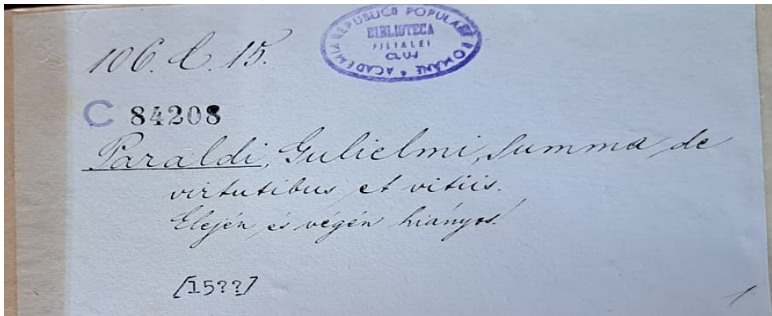 ACADEMIA REPUBLICII POPULARE ROMÂNE
BIBLIOTECA
FILIALEI
CLUJ
106. C. 15.
C 84208
Paraldi, Gulielmi, Summa de
virtutibus et vitiis.
Elején és végén hiányos!
[15??]
1